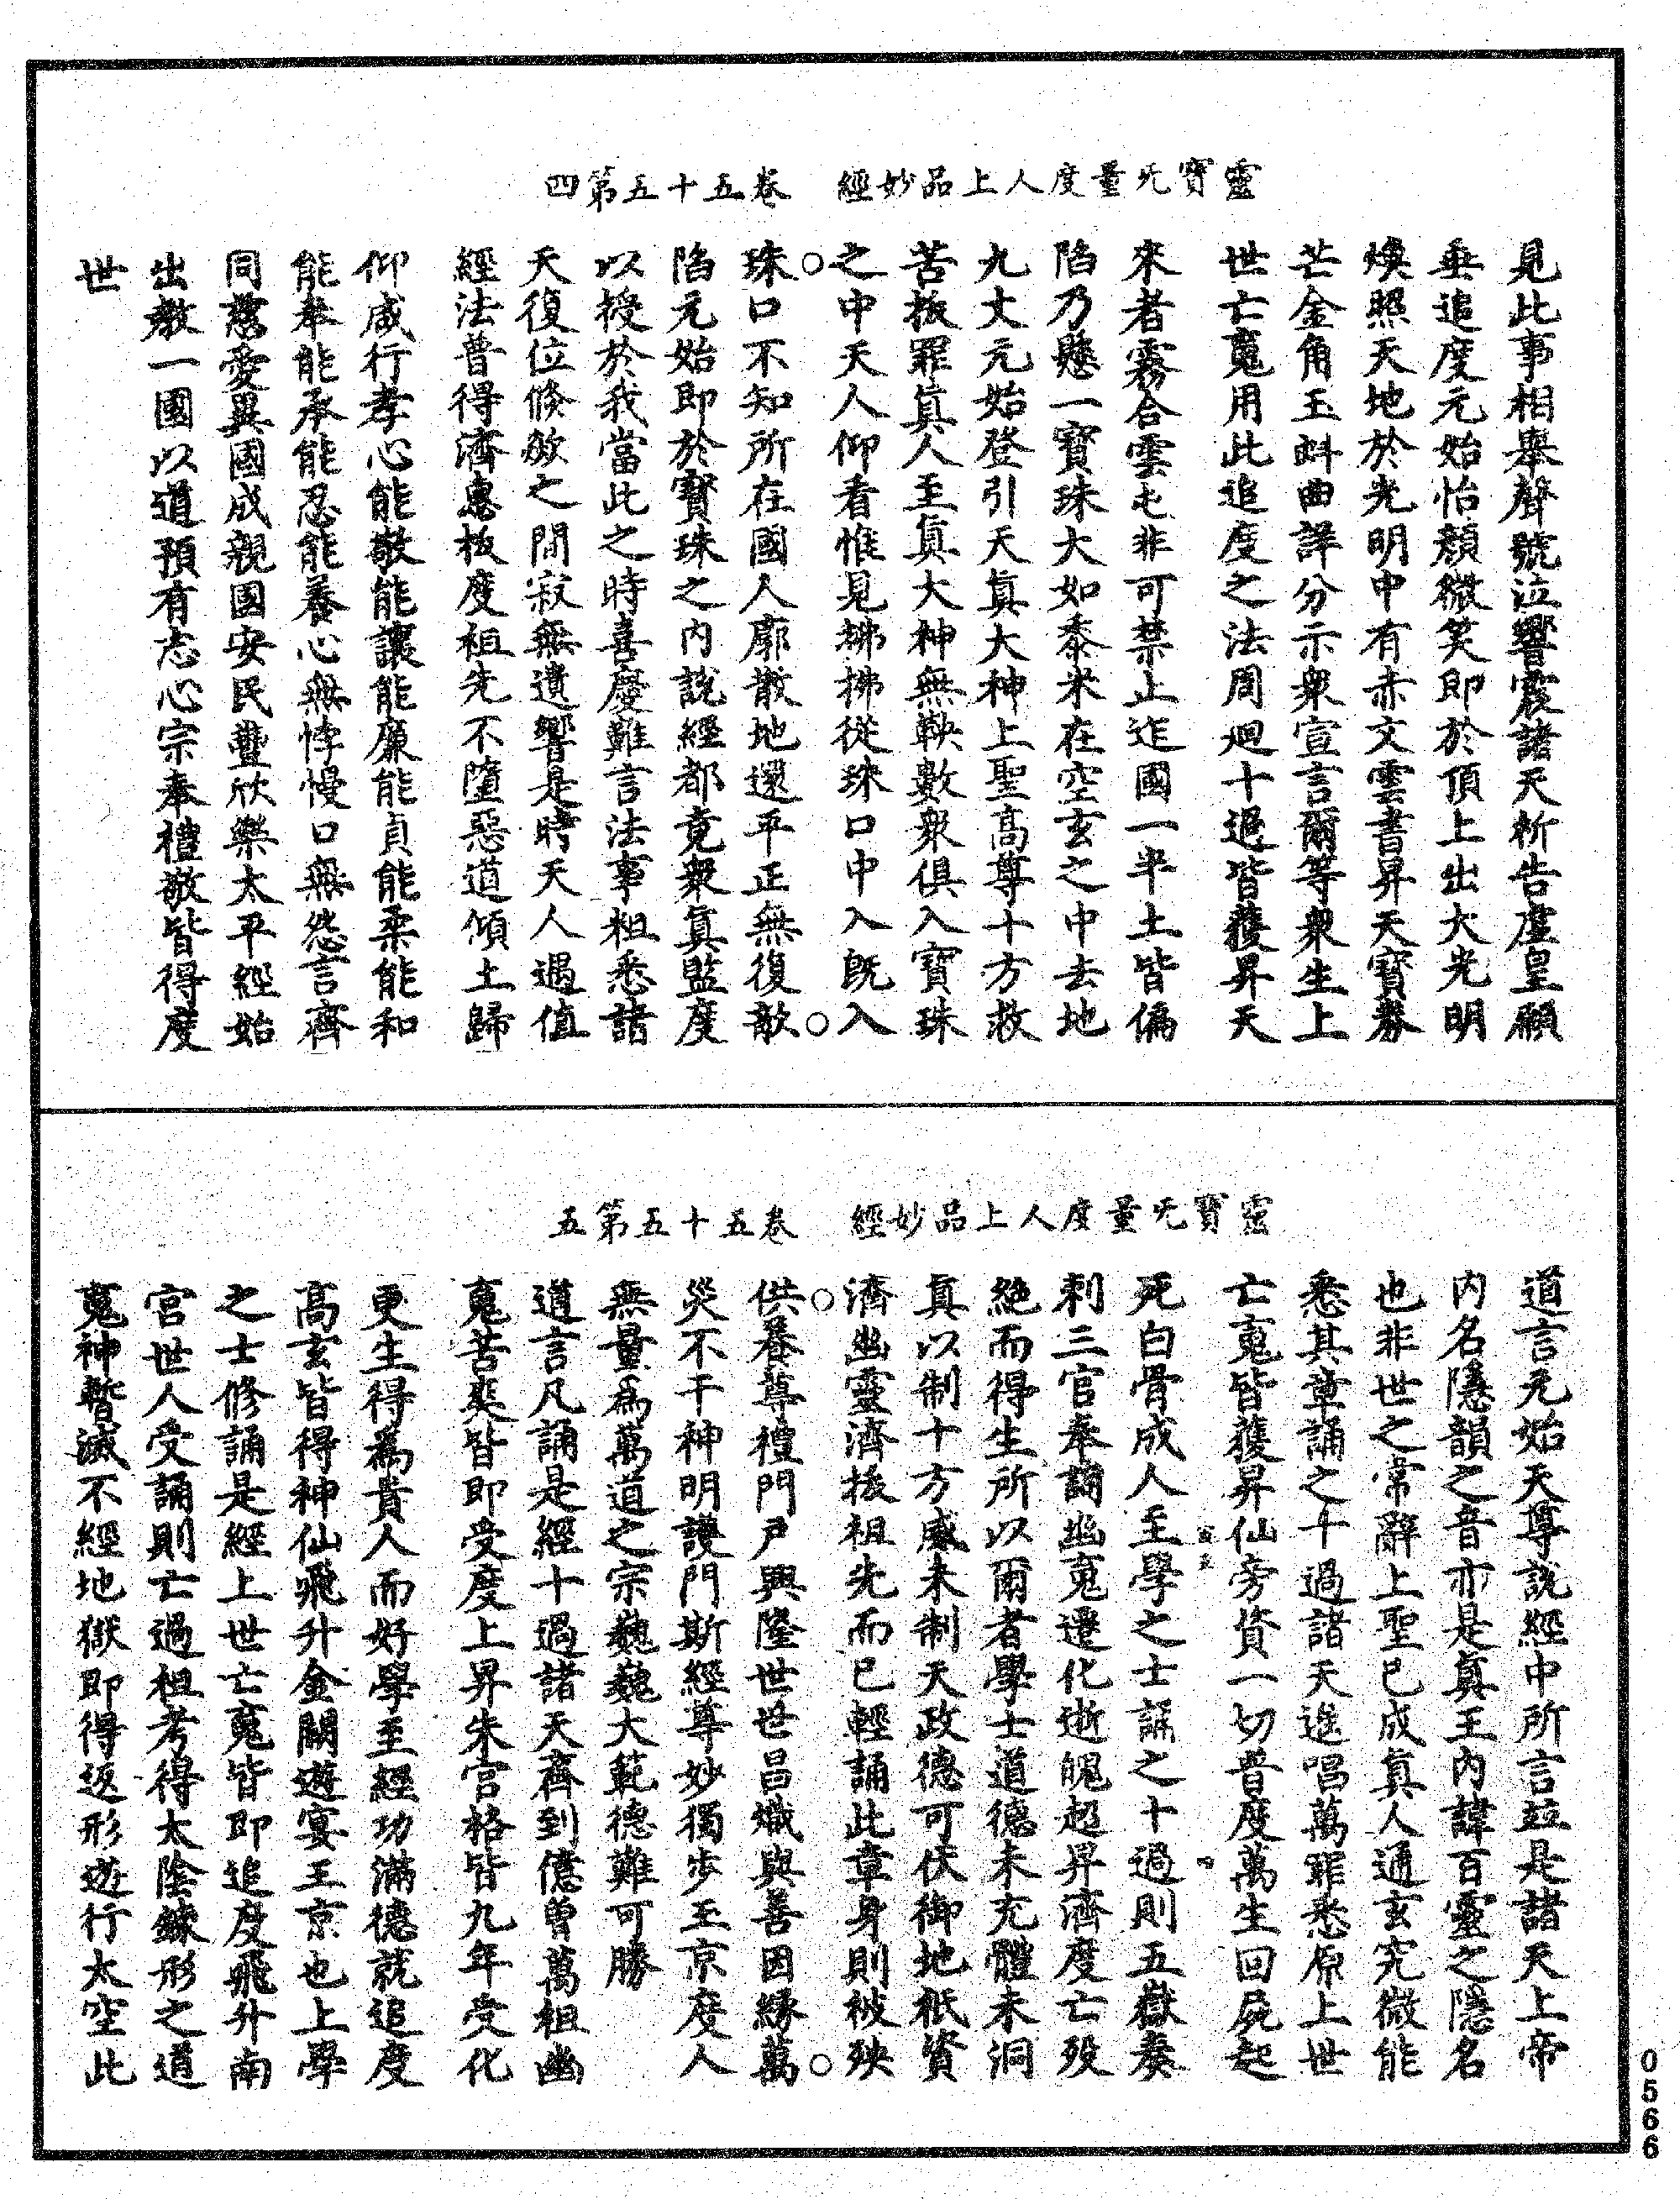 靈寶无量度人上品妙經　卷五十五第四
見此事相舉聲號泣響震諸天祈告虛皇願
垂追度元始怡顏微笑即於頂上出大光明
煥照天地於光明中有赤文雲書昇天寶券
芒金角玉斜曲詳分示衆宣言爾等衆生上
世亡䰟用此追度之法周迴十過皆獲昇天
來者霧合雲屯非可禁止迮國一半土皆偏
陷乃懸一寶珠大如黍米在空玄之中去地
九丈元始登引天眞大神上聖高尊十方救
苦拔罪眞人至眞大神無鞅數衆俱入寶珠
之中天人仰看惟見拂拂從珠口中入旣入
○　○
珠口不知所在國人廓散地還平正無復欹
陷元始即於寶珠之內說經都竟衆眞監度
以授於我當此之時喜慶難言法事粗悉諸
天復位倏欻之間寂無遺響是時天人遇值
經法普得濟惠拔度祖先不墮惡道傾土歸
仰咸行孝心能敬能讓能廉能貞能柔能和
能奉能承能忍能養心無悖慢口無怨言齊
同慈愛異國成親國安民豐欣樂太平經始
出教一國以道預有志心宗奉禮敬皆得度
世
靈寶无量度人上品妙經　卷五十五第五
道言元始天尊說經中所言竝是諸天上帝
內名隱韻之音亦是眞王內諱百靈之隱名
也非世之常辭上聖已成眞人通玄究微能
悉其章誦之十過諸天遙唱萬罪悉原上世
亡䰟皆獲昇仙旁資一切普度萬生回屍起
死白骨成人至學之士誦之十過則五嶽奏
刺三官奉誦幽䰟遷化逝魄超昇濟度亡歿
絶而得生所以爾者學士道德未充體未洞
眞以制十方威未制天政德可伏御地祇資
濟幽靈濟拔祖先而已輕誦此章身則被殃
○　○
供養尊禮門戶興隆世世昌熾與善因縁萬
災不干神明護門斯經尊妙獨步玉京度人
無量爲萬道之宗巍巍大範德難可勝
道言凡誦是經十過諸天齊到億曾萬祖幽
䰟苦爽皆即受度上昇朱宮格皆九年受化
更生得爲貴人而好學至經功滿德就追度
高玄皆得神仙飛升金闕遊宴玉京也上學
之士修誦是經上世亡䰟皆即追度飛升南
宮世人受誦則亡過祖考得太陰鍊形之道
䰟神暫滅不經地獄即得返形遊行太空此
0566